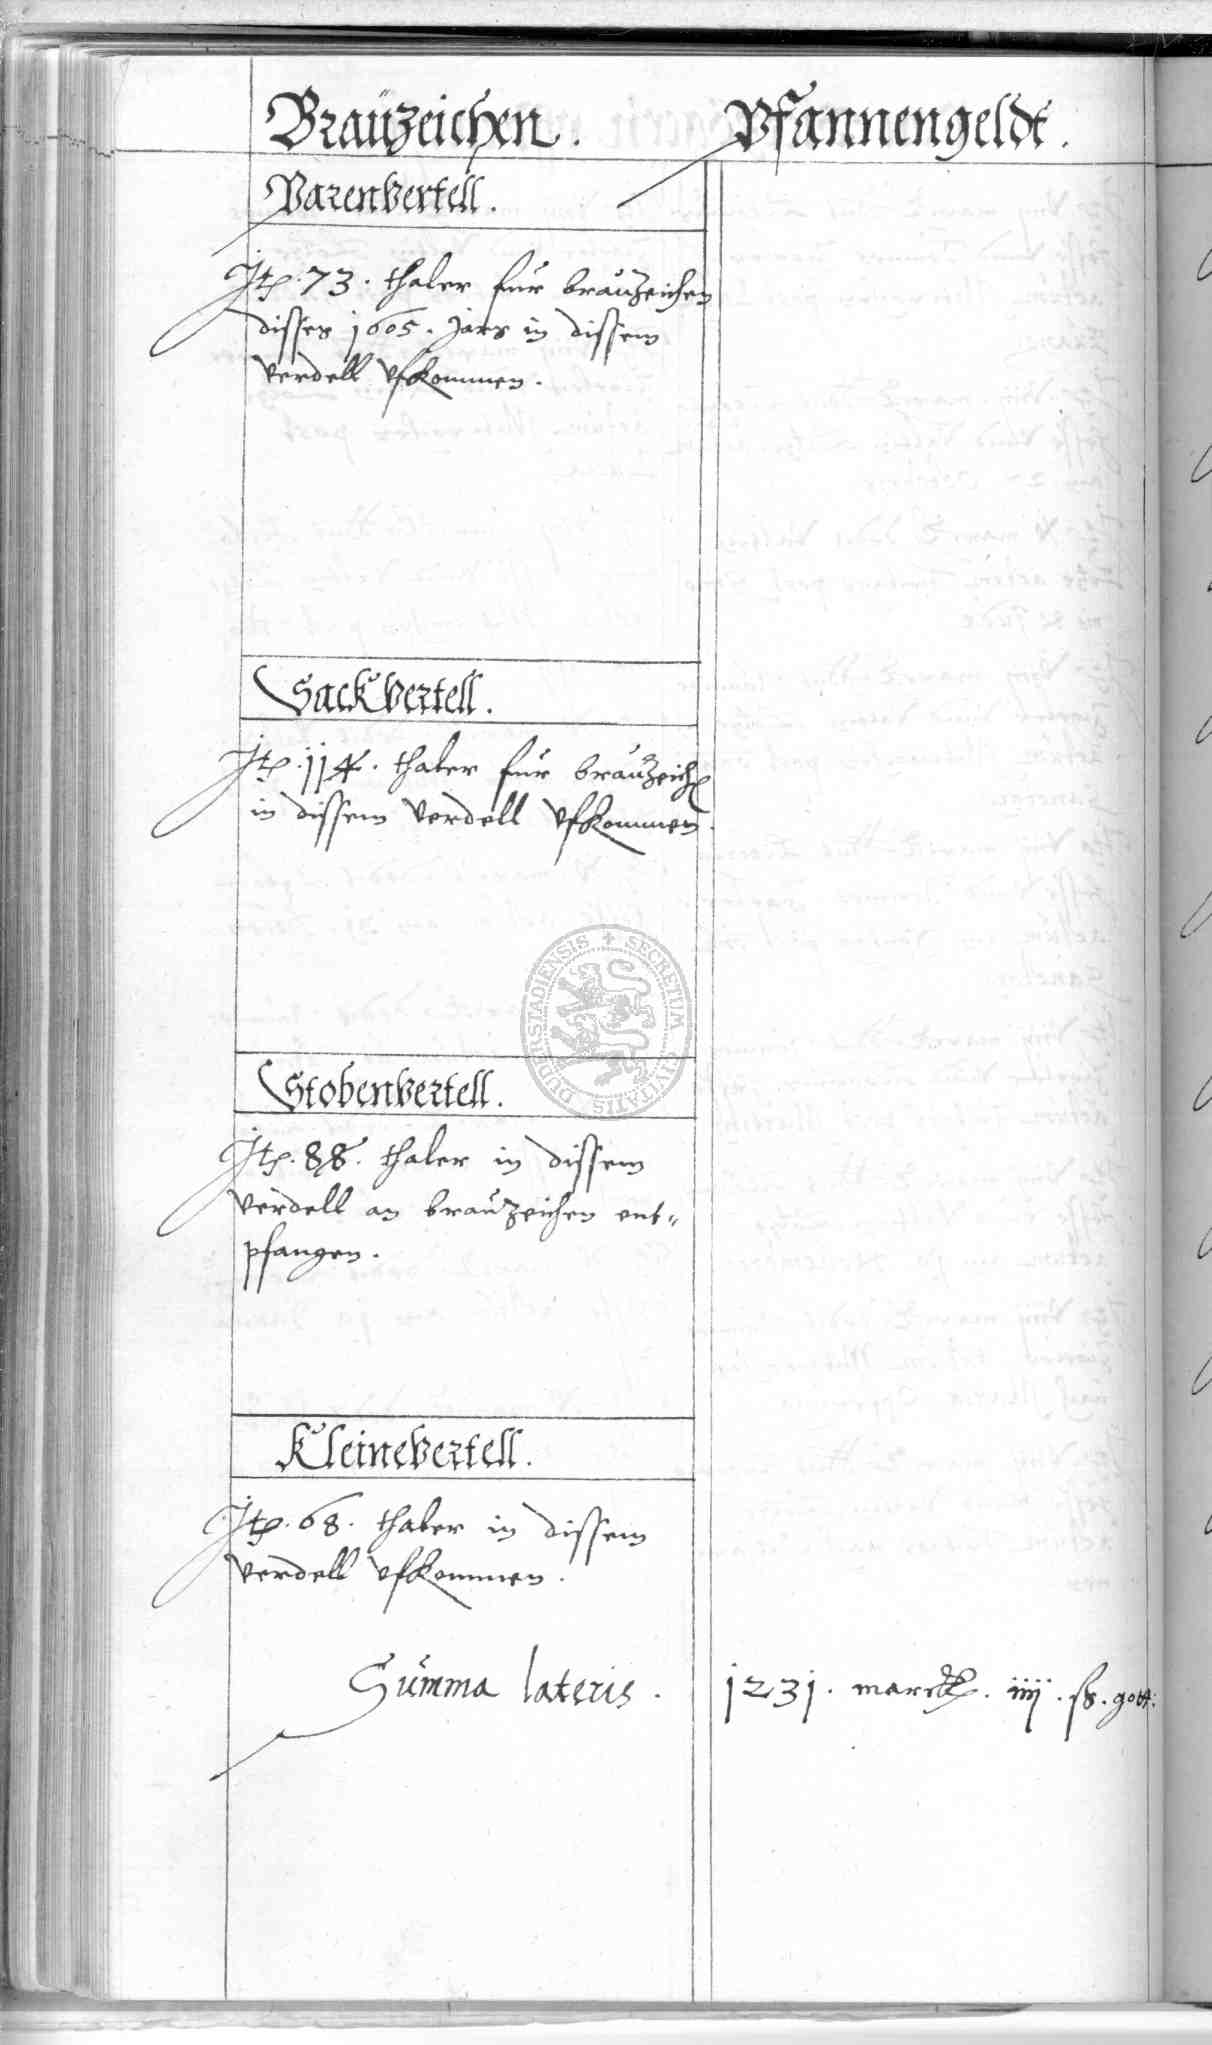 Braüzeichen. Pfannengeldt.
Barenvertell.
Jtp. 73. thaler für braüzeichen
disses 1605. Jars in dissem
verdell vfkommen.
Sackvertell.
Jtp. 114. thaler für braüzeich
in dissem verdell vfkommen.
Stobenvertell.
Jtp. 88. thaler in dissem
verdell an braüzeichen ent=
pfangen.
Kleinevertell.
Jtp. 68. thaler in dissem
verdell vfkommen.
Summa lateris. 1231. marck. iiij. ß. gott:
SECRETUM CIVITATIS DUDERSTADIENSIS